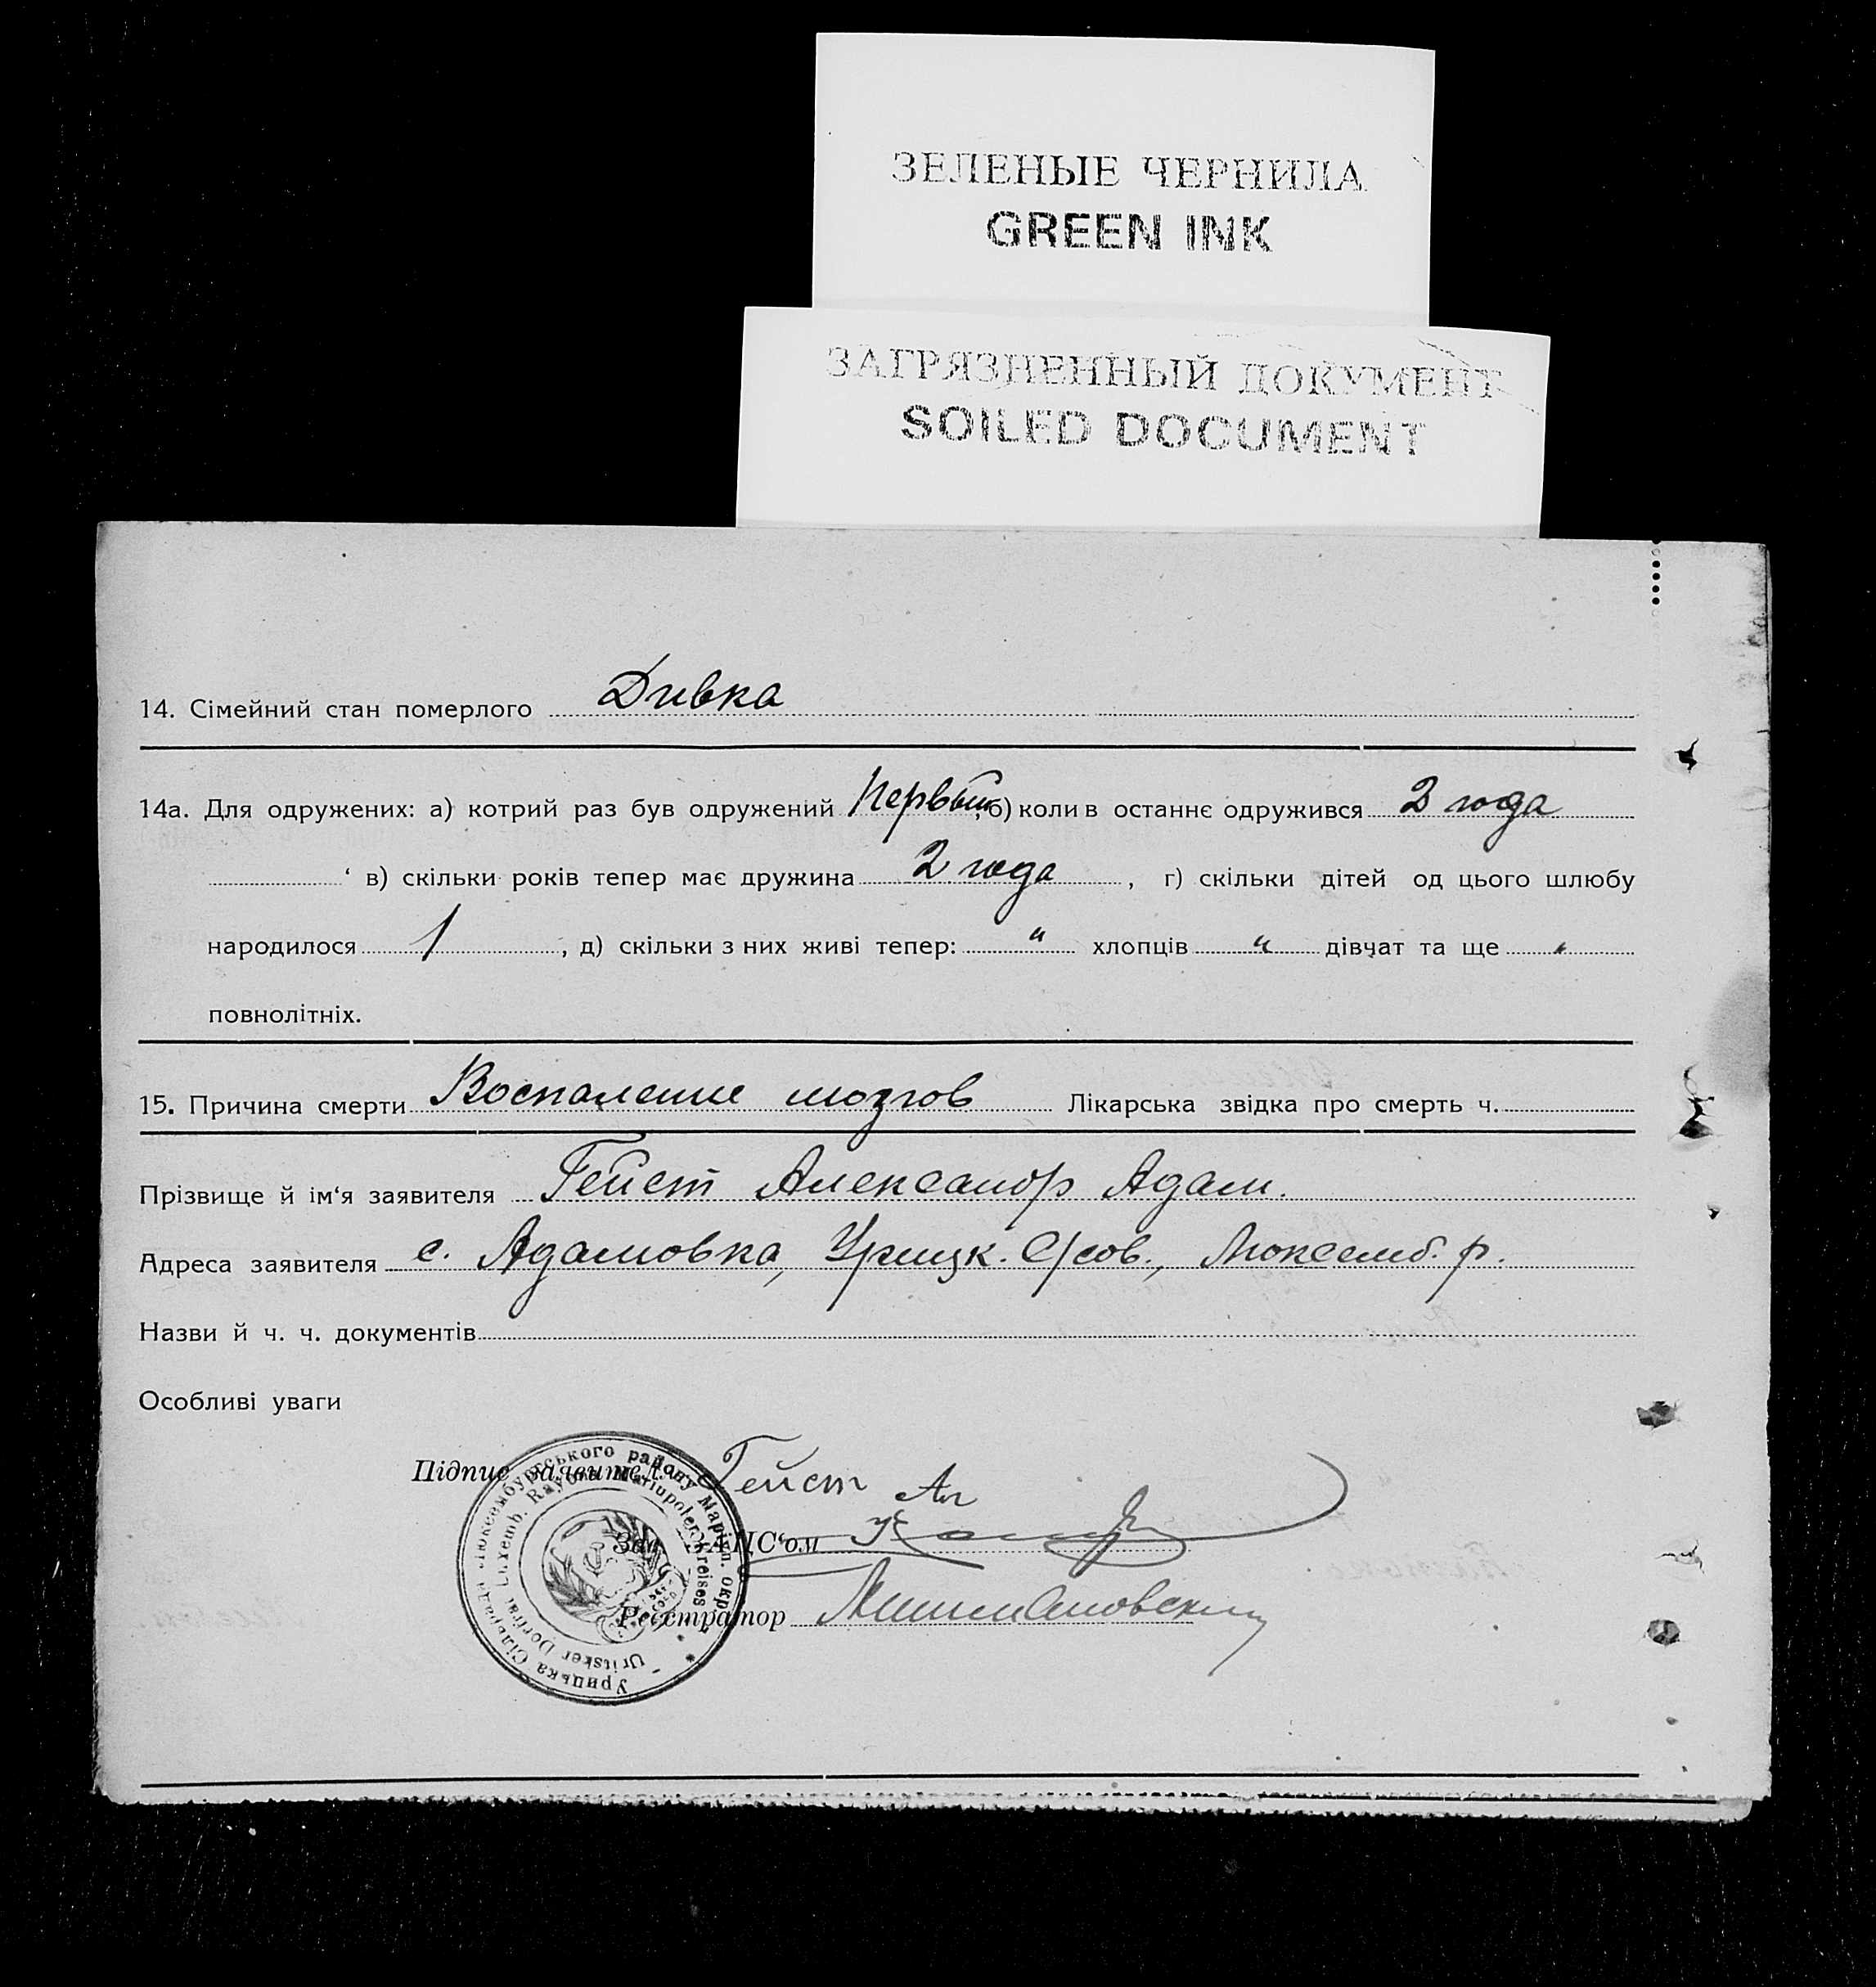 ЗЕЛЕНЫЕ ЧЕРНИЛА
GREEN INK
ЗАГРЯЗНЕННЫЙ ДОКУМЕНТ
SOILED DOCUMENT
14. Сімейний стан померлого Дивка
14а. Для одружених: а) котрий раз був одружений Первый, б) коли в останнє одружився 2 года
‘ в) скільки років тепер має дружина 2 года, г) скільки дітей од цього шлюбу
народилося 1, д) скільки з них живі тепер: " хлопців " дівчат та ще "
повнолітніх.
15. Причина смерти Воспаление мозгов Лікарська звідка про смерть ч.
Прізвище й ім‘я заявителя Гейст Александр Адам.
Адреса заявителя с. Адамовка, Урицк. С/сов., Люксемб. р.
Назви й ч. ч. документів
Особливі уваги
Підпис заявителя Гейст Ал
Зав. ЗАЦС‘ом
Реєстратор
Урицька Сільрада Люксембургського району Маріюп. окр.
Uritsker Dorfrat Luxemb. Rayons Mariupoler Kreises